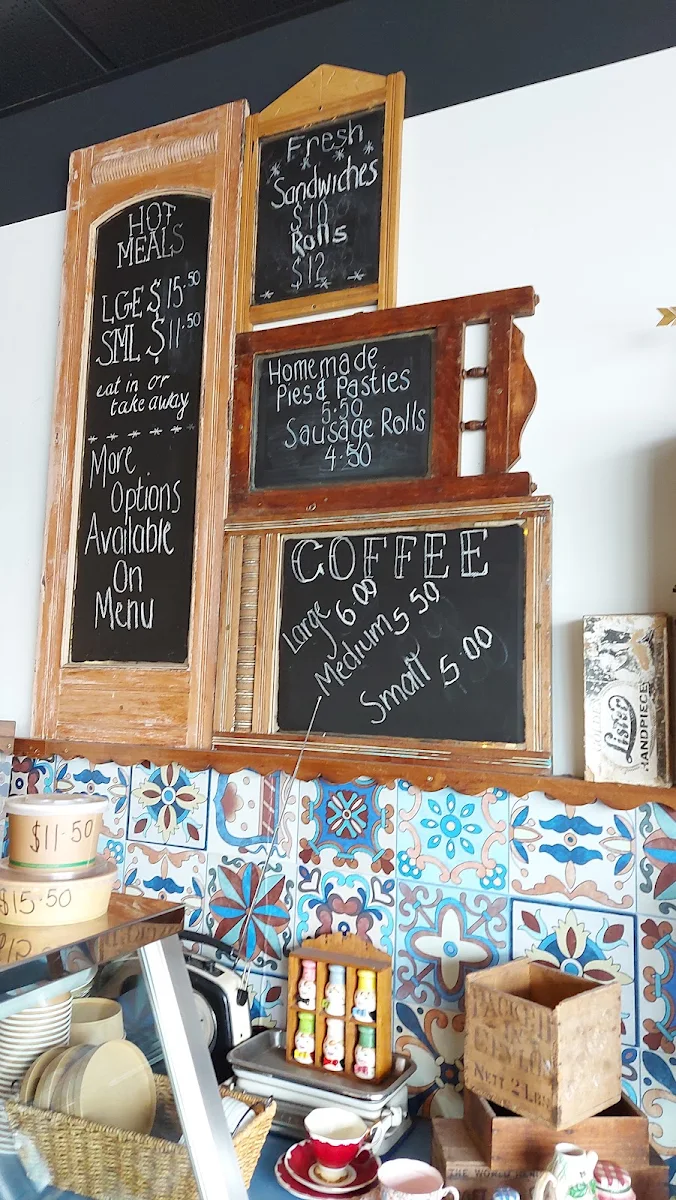 HOT
MEALS
LGE $15.50
SML $11.50
eat in or
take away
More
Options
Available
On
Menu
Fresh
Sandwiches
$10
Rolls
$12
Homemade
Pies & Pasties
5.50
Sausage Rolls
4.50
COFFEE
Large 6.00
Medium 5.50
Small 5.00
Lister
HANDPIECE
$11.50
$15.50
PACKED
IN
CEYLON
NETT 2 LBS
THE WORLD